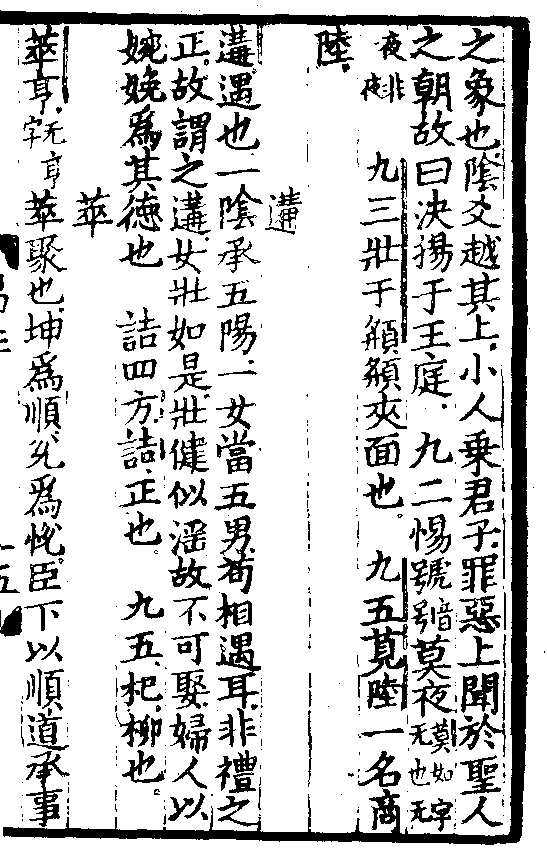 之象也陰爻越其上小人乗君子罪惡上聞於聖人
之朝故曰决揚于王庭 九二惕號號音莫夜莫如字无也无
夜非夜 九三壯于頄頄夾面也 九五莧陸一名商
陸
遘
遘遇也一陰承五陽一女當五男苟相遇耳非禮之
正故謂之遘女壯如是壯健似淫故不可娶婦人以
婉娩爲其德也 詰四方詰正也 九五杞杞柳也
萃
萃亨无亨字 萃聚也坤爲順兑爲悅臣下以順道承事